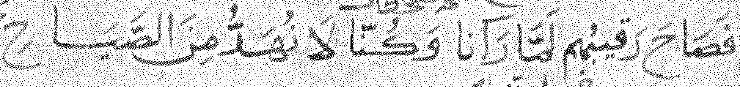 فَصَاحَ رَقيبُهم لَمَّا رَآنا وَكُنَّا لَا نُهَدُّ مِنَ الصِّيَاحِ